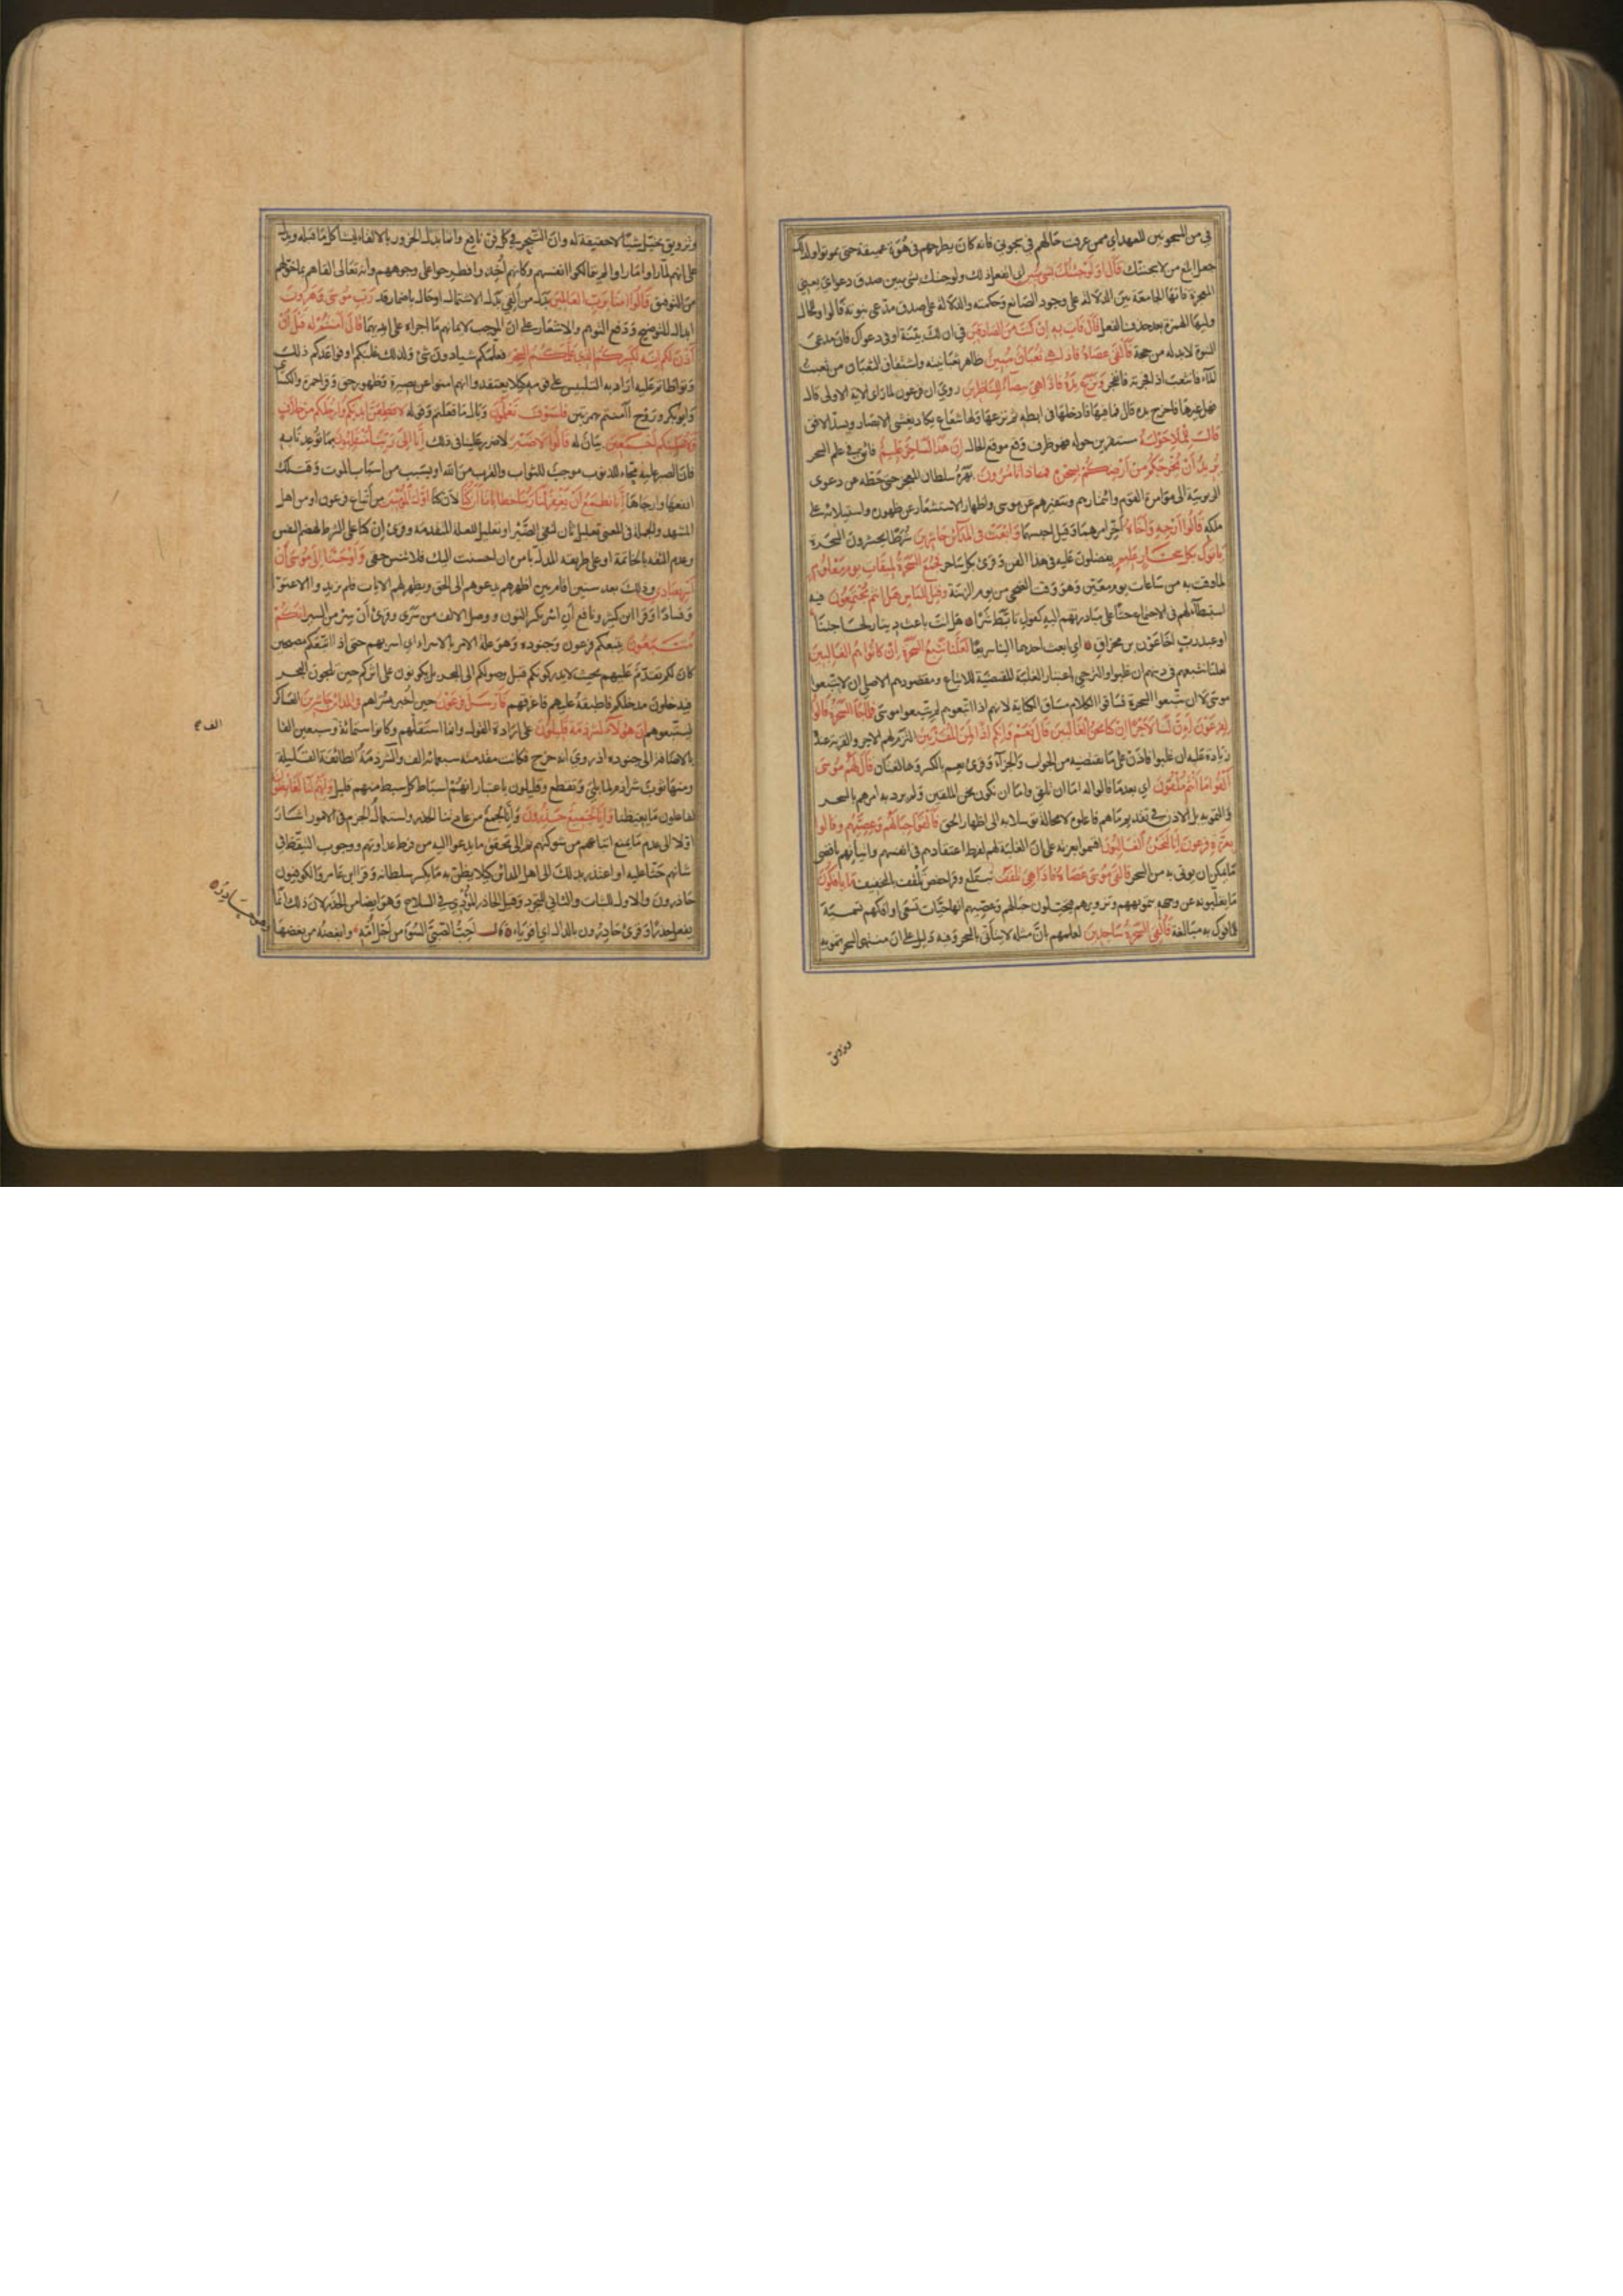 في من المسجونين للعهد اي ممن عرفت حالهم في سجوني فانه كان يطرحهم في هوة عميقة حتى يموتوا ولذلك
جعل ابلغ من لاسجننك قَالَ اَوَلَوْ جِئْتُكَ بِشَىْءٍ مُبِينٍ اي اتفعل ذلك ولو جئتك بشئ يبين صدق دعواي يعني
المعجزة فانها الجامعة بين الدلالة على وجود الصانع وحكمته والدلالة على صدق مدعي نبوته فالواو للحال
وليها الهمزة بعد حذف الفعل قَالَ فَاْتِ بِهِ اِنْ كُنْتَ مِنَ الصَّادِقِينَ في ان لك بينة او في دعواك فان مدعي
النبوة لابد له من حجة فَاَلْقَى عَصَاهُ فَاِذَا هِيَ ثُعْبَانٌ مُبِينٌ ظاهر ثعبانيته واشتقاق الثعبان من ثعبت
الماء فانثعب اذا فجرته فانفجر وَنَزَعَ يَدَهُ فَاِذَا هِيَ بَيْضَآءُ لِلنَّاظِرِينَ روي ان فرعون لما راى الاية الاولى قال
فهل غيرها فاخرج يده قال فما فيها فادخلها في ابطه ثم نزعها ولها شعاع يكاد يغشى الابصار ويسد الافق
قَالَ لِلْمَلَاِ حَوْلَهُ مستقرين حوله فهو ظرف وقع موقع الحال اِنَّ هَذَا لَسَاحِرٌ عَلِيمٌ فائق في علم السحر
يُرِيدُ اَنْ يُخْرِجَكُمْ مِنْ اَرْضِكُمْ بِسِحْرِهِ فَمَاذَا تَاْمُرُونَ بهره سلطان المعجز حتى حطه عن دعوى
الربوبية الى مؤامرة القوم وائتمارهم وتنفيرهم عن موسى واظهار الاستشعار عن ظهوره واستيلائه على
ملكه قَالُوا اَرْجِهْ وَاَخَاهُ اخر امرهما وقيل احبسهما وَابْعَثْ فِي الْمَدَآئِنِ حَاشِرِينَ شرطا يحشرون السحرة
يَاْتُوكَ بِكُلِّ سَحَّارٍ عَلِيمٍ يفضلون عليه في هذا الفن وقرئ بكل ساحر فَجُمِعَ السَّحَرَةُ لِمِيقَاتِ يَوْمٍ مَعْلُومٍ
لما وقت به من ساعات يوم معين وهو وقت الضحى من يوم الزينة وَقِيلَ لِلنَّاسِ هَلْ اَنْتُمْ مُجْتَمِعُونَ فيه
استبطآء لهم في الاجتماع حثا على مبادرتهم اليه كقول تابط شرا هل انت باعث دينار لحاجتنا
او عبد رب اخا عون بن مخراق اي ابعث احدهما الينا سريعا لَعَلَّنَا نَتَّبِعُ السَّحَرَةَ اِنْ كَانُوا هُمُ الْغَالِبِينَ
لعلنا نتبعهم في دينهم ان غلبوا والترجي باعتبار الغلبة المقتضية للاتباع ومقصودهم الاصلي ان لا يتبعوا
موسى لا ان يتبعوا السحرة فساقوا الكلام مساق الكناية لانهم اذا اتبعوهم لم يتبعوا موسى فَلَمَّا جَآءَ السَّحَرَةُ قَالُوا
لِفِرْعَوْنَ اَئِنَّ لَنَا لَاَجْرًا اِنْ كُنَّا نَحْنُ الْغَالِبِينَ قَالَ نَعَمْ وَاِنَّكُمْ اِذًا لَمِنَ الْمُقَرَّبِينَ التزم لهم الاجر والقربة عنده
زيادة عليه ان غلبوا فاذن على ما يقتضيه من الجواب والجزآء وقرئ نعم بالكسر وهما لغتان قَالَ لَهُمْ مُوسَى
اَلْقُوا مَا اَنْتُمْ مُلْقُونَ اي بعد ما قالوا له اما ان تلقي واما ان نكون نحن الملقين ولم يرد به امرهم بالسحر
والتمويه بل الاذن في تقديم ما هم فاعلوه لا محالة توسلا به الى اظهار الحق فَاَلْقَوْا حِبَالَهُمْ وَعِصِيَّهُمْ وَقَالُوا
بِعِزَّةِ فِرْعَوْنَ اِنَّا لَنَحْنُ الْغَالِبُونَ اقسموا بعزته على ان الغلبة لهم لفرط اعتقادهم في انفسهم واتيانهم باقصى
ما يمكن ان يؤتى به من السحر فَاَلْقَى مُوسَى عَصَاهُ فَاِذَا هِيَ تَلْقَفُ تبتلع وقرا حفص تلقف بالتخفيف مَا يَاْفِكُونَ
ما يقلبونه عن وجهه بتمويههم وتزويرهم فيخيلون حبالهم وعصيهم انها حيات تسعى او افكهم تسمية
للمافوك به مبالغة فَاُلْقِيَ السَّحَرَةُ سَاجِدِينَ لعلمهم بان مثله لا يتاتى بالسحر وفيه دليل على ان منتهى السحر تمويه
وتزويق
وتزويق يخيل شيئا لا حقيقة له وان التبحر في كل فن نافع وانما بدل الخرور بالالقاء ليشاكل ما قبله ويدل
على انهم لما راوا ما راوا لم يتمالكوا انفسهم وكانهم اخذوا فطرحوا على وجوههم وانه تعالى القاهم بما خولهم
من التوفيق قَالُوا اٰمَنَّا بِرَبِّ الْعَالَمِينَ بدل من القي بدل الاشتمال او حال باضمار قد رَبِّ مُوسَى وَهَرُونَ
ابدال للتوضيح ودفع التوهم والاشعار على ان الموجب لايمانهم ما اجراه على ايديهما قَالَ اٰمَنْتُمْ لَهُ قَبْلَ اَنْ
اٰذَنَ لَكُمْ اِنَّهُ لَكَبِيرُكُمُ الَّذِي عَلَّمَكُمُ السِّحْرَ فعلمكم شيئا دون شئ ولذلك غلبكم او فواعدكم ذلك
وتواطاتم عليه اراد به التلبيس على قومه كيلا يعتقدوا انهم امنوا عن بصيرة وظهور حق وقرا حمزة والكسائي
وابو بكر وروح ءآمنتم بهمزتين فَلَسَوْفَ تَعْلَمُونَ وبال ما فعلتم وقوله لَاُقَطِّعَنَّ اَيْدِيَكُمْ وَاَرْجُلَكُمْ مِنْ خِلَافٍ
وَلَاُصَلِّبَنَّكُمْ اَجْمَعِينَ بيان له قَالُوا لَا ضَيْرَ لا ضرر علينا في ذلك اِنَّا اِلَى رَبِّنَا مُنْقَلِبُونَ بما توعدنا به
فان الصبر عليه محاء للذنوب موجب للثواب والقرب من الله او بسبب من اسباب الموت وقتلك
انفعها وارجاها اِنَّا نَطْمَعُ اَنْ يَغْفِرَ لَنَا رَبُّنَا خَطَايَانَا اَنْ كُنَّا لان كنا اَوَّلَ الْمُؤْمِنِينَ من اتباع فرعون او من اهل
المشهد والجملة في المعنى تعليل ثان لنفي الضير او تعليل للعلة المتقدمة وقرئ ان كنا على الشرط لهضم النفس
وعدم الثقة بالخاتمة او على طريقة المدل بامره ان احسنت اليك فلا تنس حقي وَاَوْحَيْنَا اِلَى مُوسَى اَنْ
اَسْرِ بِعِبَادِي وذلك بعد سنين اقام بين اظهرهم يدعوهم الى الحق ويظهر لهم الايات فلم يزيدوا الا عتوا
وفسادا وقرا ابن كثير ونافع ان اسر بكسر النون ووصل الالف من سرى وقرئ ان سر من السير اِنَّكُمْ
مُتَّبَعُونَ يتبعكم فرعون وجنوده وهو علة الامر بالاسراء اي اسر بهم حتى اذا اتبعوكم مصبحين
كان لكم تقدم عليهم بحيث لا يدركونكم قبل وصولكم الى البحر بل يكونون على اثركم حين تلجون البحر
فيدخلون مدخلكم فاطبقه عليهم فاغرقهم فَاَرْسَلَ فِرْعَوْنُ حين اخبر بسراهم فِي الْمَدَآئِنِ حَاشِرِينَ العساكر
ليتبعوهم اِنَّ هَؤُلَآءِ لَشِرْذِمَةٌ قَلِيلُونَ على ارادة القول وانما استقلهم وكانوا ستمائة وسبعين الفا
بالاضافة الى جنوده اذ روي انه خرج فكانت مقدمته سبعمائة الف والشرذمة الطائفة القليلة
ومنها ثوب شراذم لما بلي وتقطع وقليلون باعتبار انهم اسباط كل سبط منهم قليل وَاِنَّهُمْ لَنَا لَغَآئِظُونَ
لفاعلون ما يغيظنا وَاِنَّا لَجَمِيعٌ حَذِرُونَ وانا لجمع من عادتنا الحذر واستعمال الحزم في الامور اشار
اولا الى عدم ما يمنع اتباعهم من شوكتهم ثم الى تحقق ما يدعو اليه من فرط عداوتهم ووجوب التيقظ في
شانهم حثا عليه او اعتذر بذلك الى اهل المدائن كيلا يظن به ما يكسر سلطانه وقرا ابن عامر والكوفيون
حاذرون والاول للثبات والثاني للتجدد وقيل الحاذر المؤدي في السلاح وهو ايضا من الحذر لان ذلك انما
يفعل حذرا وقرئ حادرون بالدال اي اقوياء قال احب الصبي السوء من اجل امه وابغضه من بغضها
الف